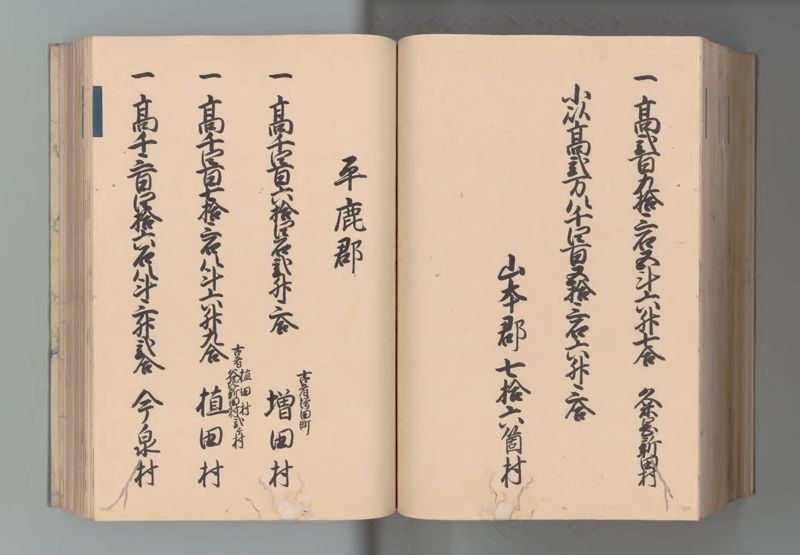 一 高弐百九拾三石五斗六升七合 久米岡新田村
小以高弐万八千四百五拾三石六升三合
山本郡 七拾六箇村
平鹿郡
一 高千四百六拾四石弐升三合
古者増田町
増田村
一 高千四百七拾三石八斗六升九合
古者植田村
植田村
一 高千三百四拾六石八斗三升弐合 今泉村